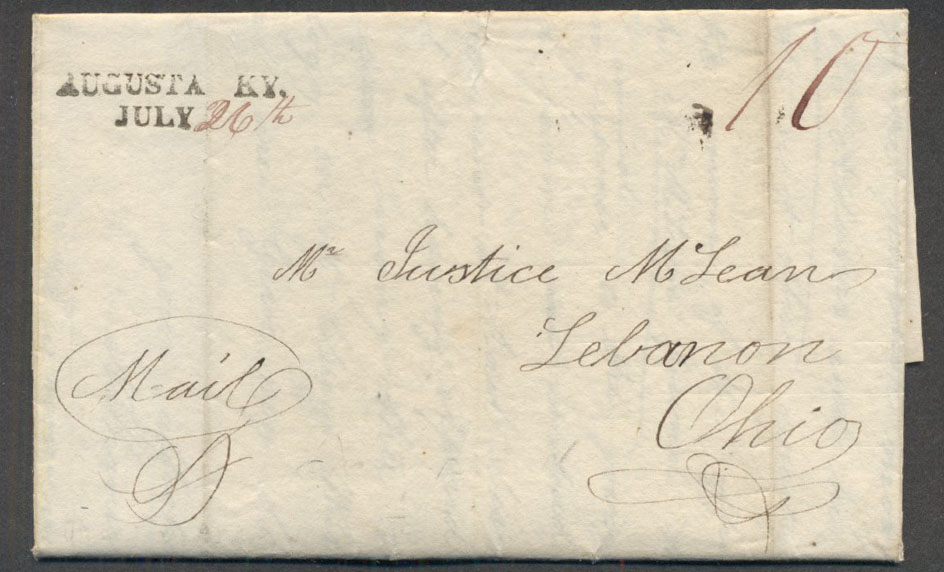 AUGUSTA KY.
JULY 26th
10
Mr Justice McLean
Lebanon
Ohio
Mail